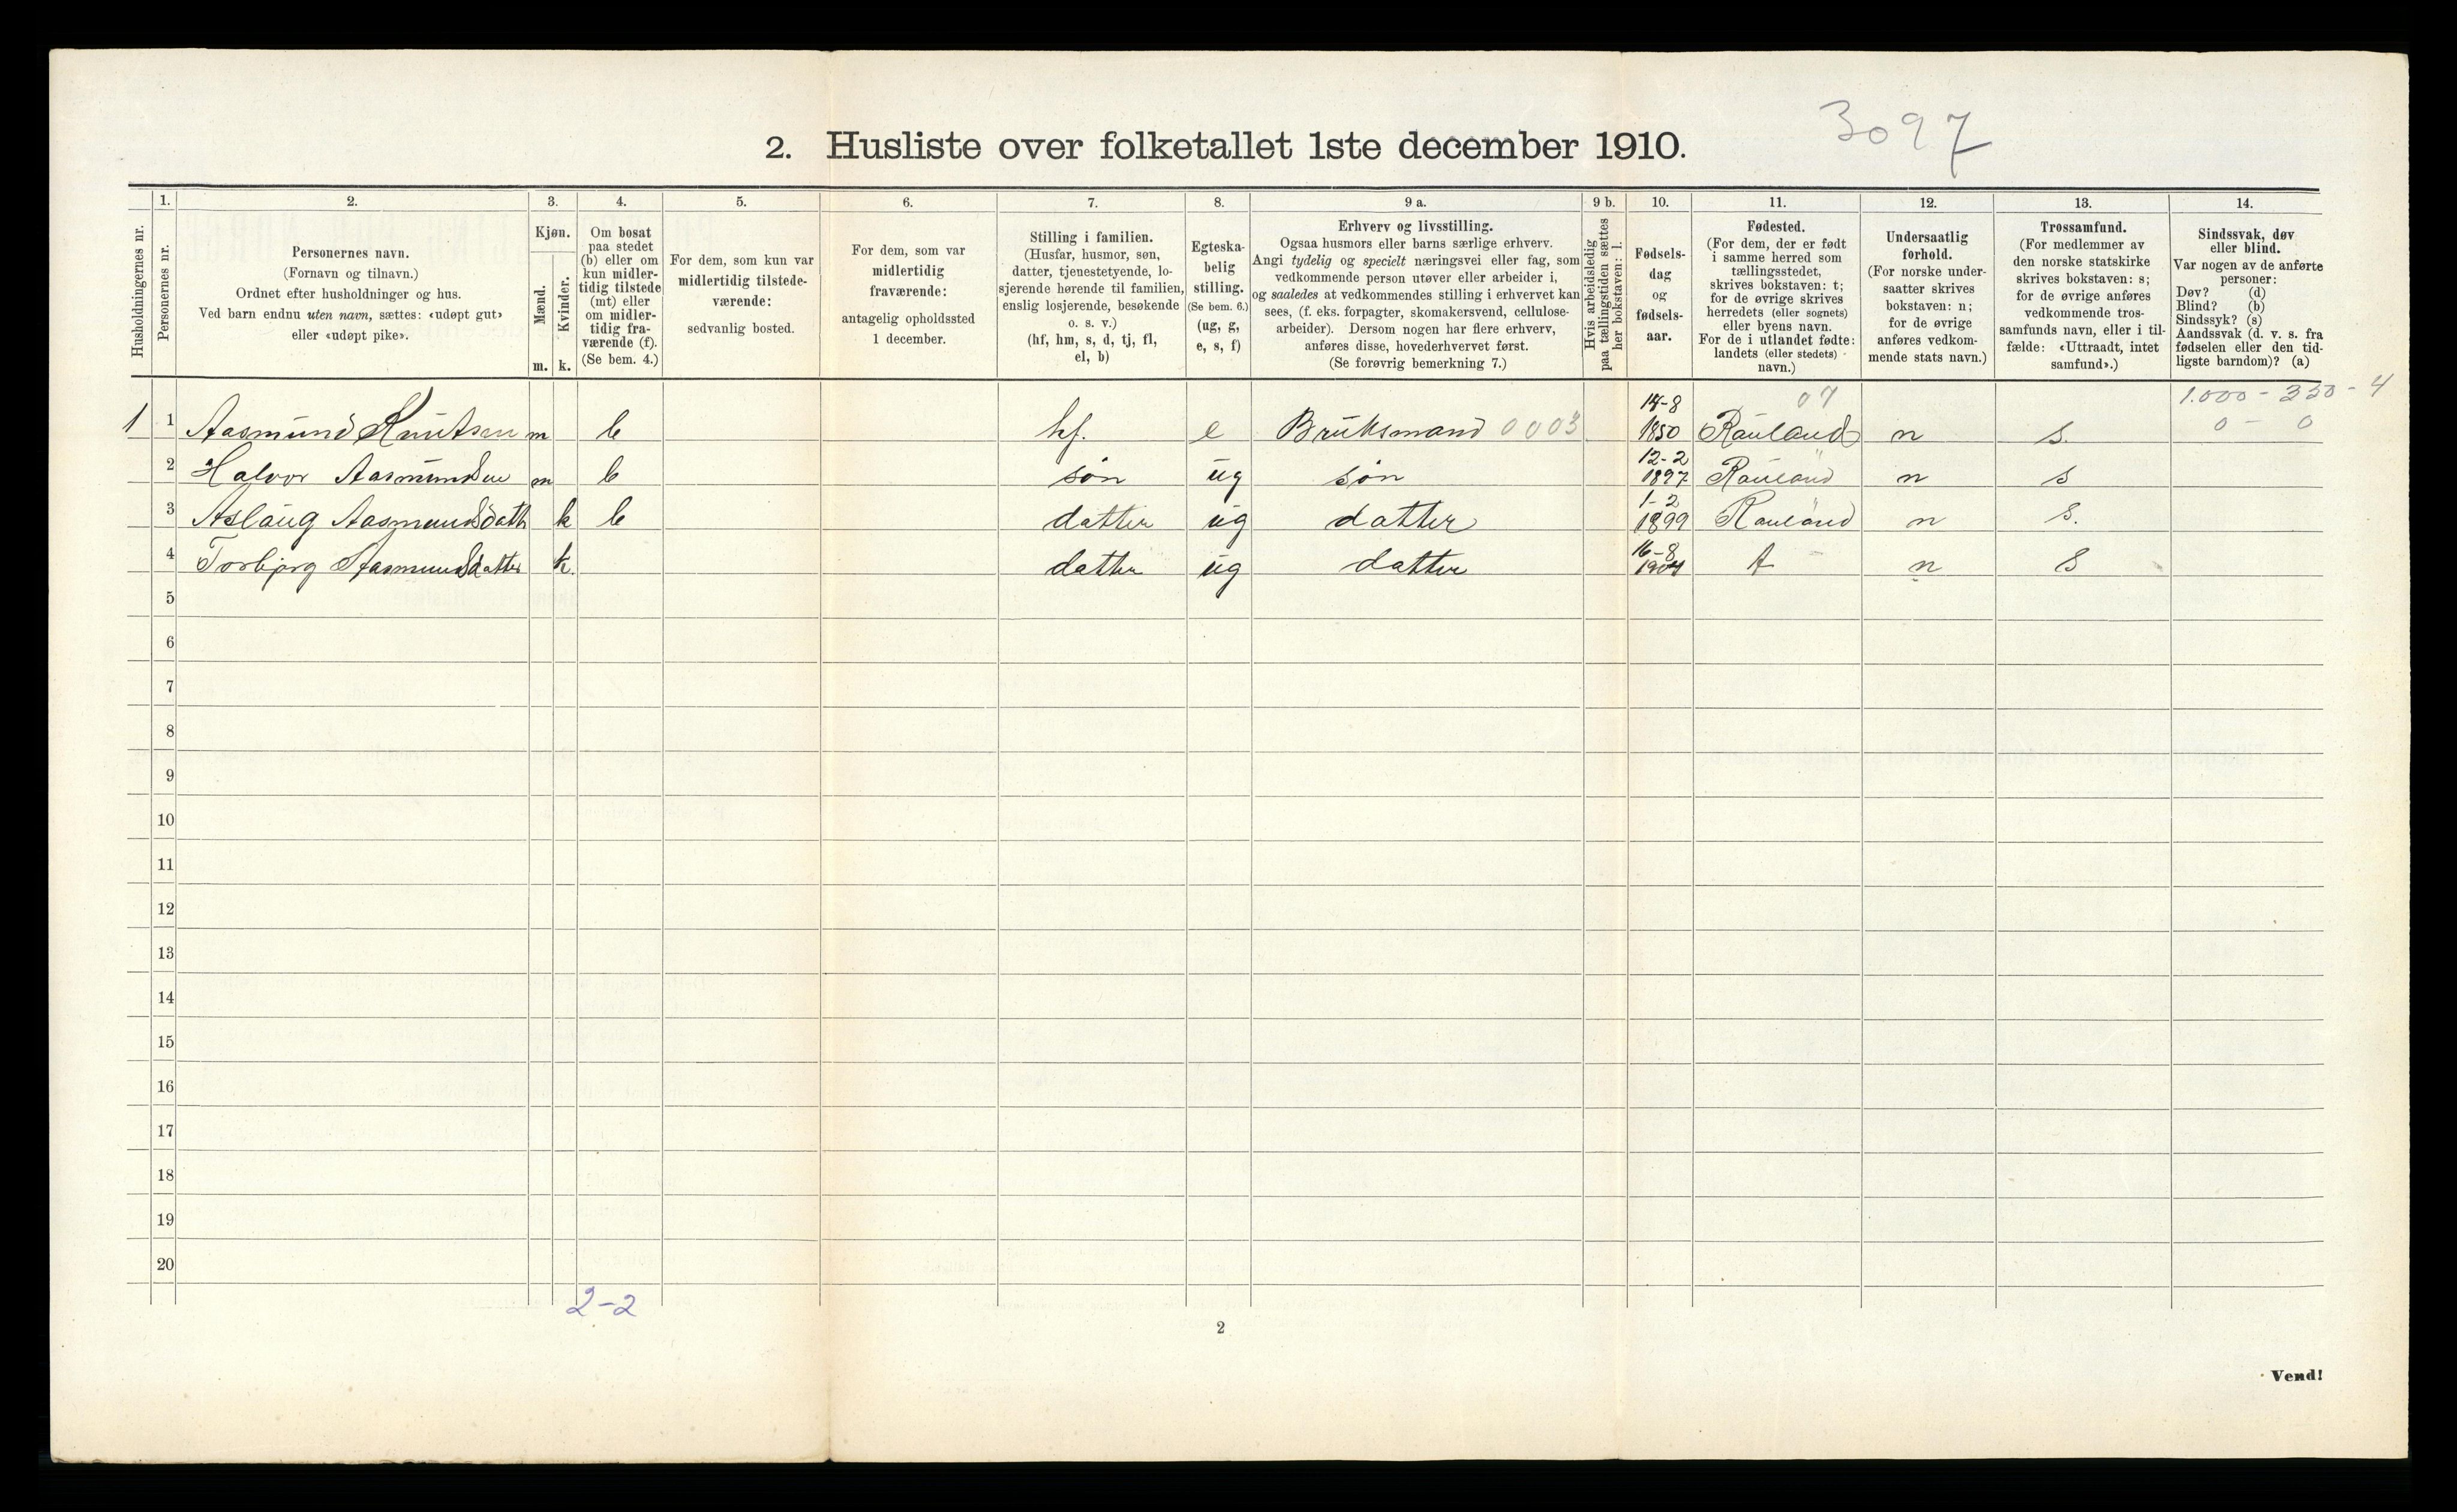 3097
2. Husliste over folketallet 1ste december 1910.
Husholdningernes nr.
1.
Personernes nr.
2.
Personernes navn.
(Fornavn og tilnavn.)
Ordnet efter husholdninger og hus.
Ved barn endnu uten navn, sættes: «udøpt gut»
eller «udøpt pike».
3.
Kjøn.
Mænd.
Kvinder.
m. k.
4.
Om bosat
paa stedet
(b) eller om
kun midler-
tidig tilstede
(mt) eller
om midler-
tidig fra-
værende (f).
(Se bem. 4.)
5.
For dem, som kun var
midlertidig tilstede-
værende:
sedvanlig bosted.
6.
For dem, som var
midlertidig
fraværende:
antagelig opholdssted
1 december.
7.
Stilling i familien.
(Husfar, husmor, søn,
datter, tjenestetyende, lo-
sjerende hørende til familien,
enslig losjerende, besøkende
o. s. v.)
(hf, hm, s, d, tj, fl,
el, b)
8.
Egteska-
belig
stilling.
(Se bem. 6.)
(ug, g,
e, s, f)
9 a.
Erhverv og livsstilling.
Ogsaa husmors eller barns særlige erhverv.
Angi tydelig og specielt næringsvei eller fag, som
vedkommende person utøver eller arbeider i,
og saaledes at vedkommendes stilling i erhvervet kan
sees, (f. eks. forpagter, skomakersvend, cellulose-
arbeider). Dersom nogen har flere erhverv,
anføres disse, hovederhvervet først.
(Se forøvrig bemerkning 7.)
9 b.
Hvis arbeidsledig
paa tællingstiden sættes
her bokstaven: l.
10.
Fødsels-
dag
og
fødsels-
aar.
11.
Fødested.
(For dem, der er født
i samme herred som
tællingsstedet,
skrives bokstaven: t;
for de øvrige skrives
herredets (eller sognets)
eller byens navn.
For de i utlandet fødte:
landets (eller stedets)
navn.)
12.
Undersaatlig
forhold.
(For norske under-
saatter skrives
bokstaven: n;
for de øvrige
anføres vedkom-
mende stats navn.)
13.
Trossamfund.
(For medlemmer av
den norske statskirke
skrives bokstaven: s;
for de øvrige anføres
vedkommende tros-
samfunds navn, eller i til-
fælde: «Uttraadt, intet
samfund».)
14.
Sindssvak, døv
eller blind.
Var nogen av de anførte
personer:
Døv? (d)
Blind? (b)
Sindssyk? (s)
Aandssvak (d. v. s. fra
fødselen eller den tid-
ligste barndom)? (a)
07 1.000 - 350 - 4
1 1 Aasmund Knutsen m b hf. e Bruksmand 0003 14-8 1850 Rauland n s. 0 - 0
2 Halvor Aasmundsen m b søn ug søn 12-2 1897 Rauland n s
3 Aslaug Aasmundsdatt k b datter ug datter 1-2 1899 Rauland n s.
4 Torbjørg Aasmundsdatter k. datter ug datter 16-8 1904 t n s
5
6
7
8
9
10
11
12
13
14
15
16
17
18
19
20
2-2
2
Vend!